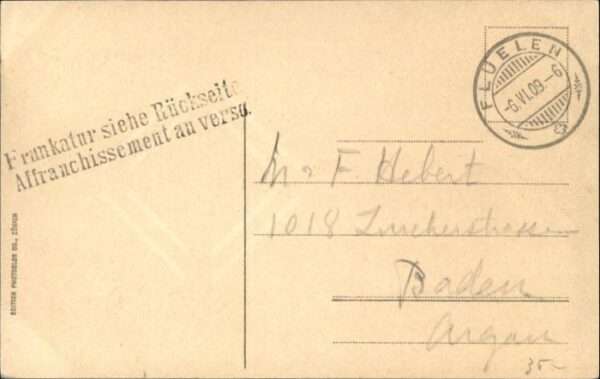 FLÜELEN
-6.VI.09.-6
Frankatur siehe Rückseite
Affranchissement au verso.
Mr F. Hebert
1018 Zürcherstrasse
Baden
Argau
EDITION PHOTOGLOB CO., ZÜRICH
35.-